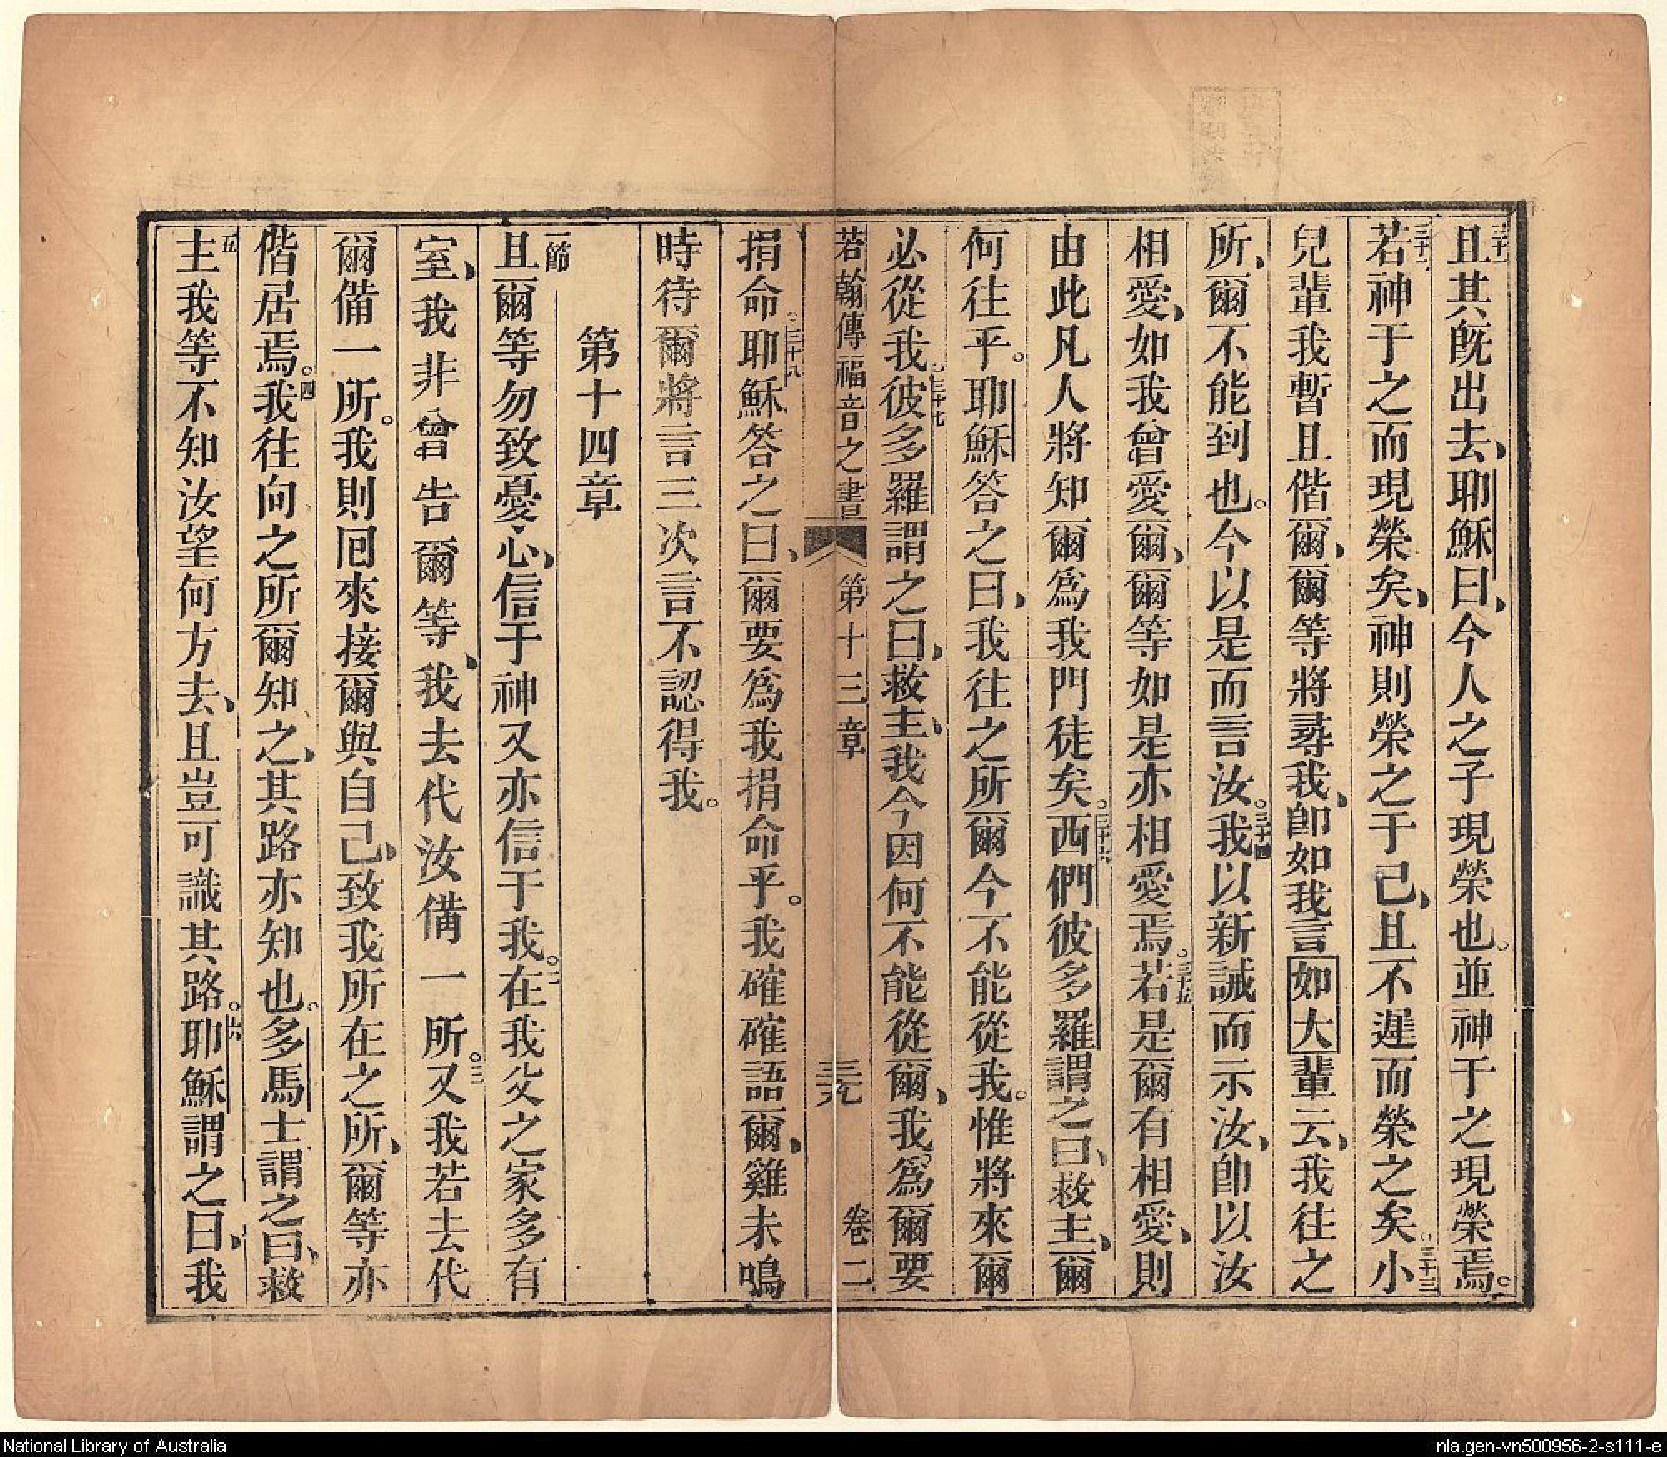 且其旣出去、耶穌曰、今人之子現榮也。並神于之現榮焉。
三十二
若神于之而現榮矣、神則榮之于己、且不遲而榮之矣。三十三小
兒輩我暫且偕爾、爾等將尋我、卽如我言如大輩云、我往之
所、爾不能到也。今以是而言汝。三十四我以新誡而示汝、卽以汝
相愛、如我曾愛爾、爾等如是亦相愛焉。三十五若是爾有相愛、則
由此凡人將知爾爲我門徒矣。三十六西們彼多羅謂之曰、救主、爾
何往乎。耶穌答之曰、我往之所爾今不能從我。惟將來爾
必從我。三十七彼多羅謂之曰、救主、我今因何不能從爾、我爲爾要
若翰傳福音之書 第十三章 三九 卷二
捐命。三十八耶穌答之曰、爾要爲我捐命乎。我確確語爾、雞未鳴
時待爾將言三次言不認得我。
第十四章
一節
且爾等勿致憂心、信于神又亦信于我。二在我父之家多有
室、我非曾告爾等、我去代汝備一所。三又我若去代
爾備一所。我則囘來接爾與自己、致我所在之所、爾等亦
偕居焉。四我往向之所爾知之、其路亦知也。多馬士謂之曰、救
五
主我等不知汝望何方去、且豈可識其路。六耶穌謂之曰、我
National Library of Australia
nla.gen-vn500956-2-s111-e